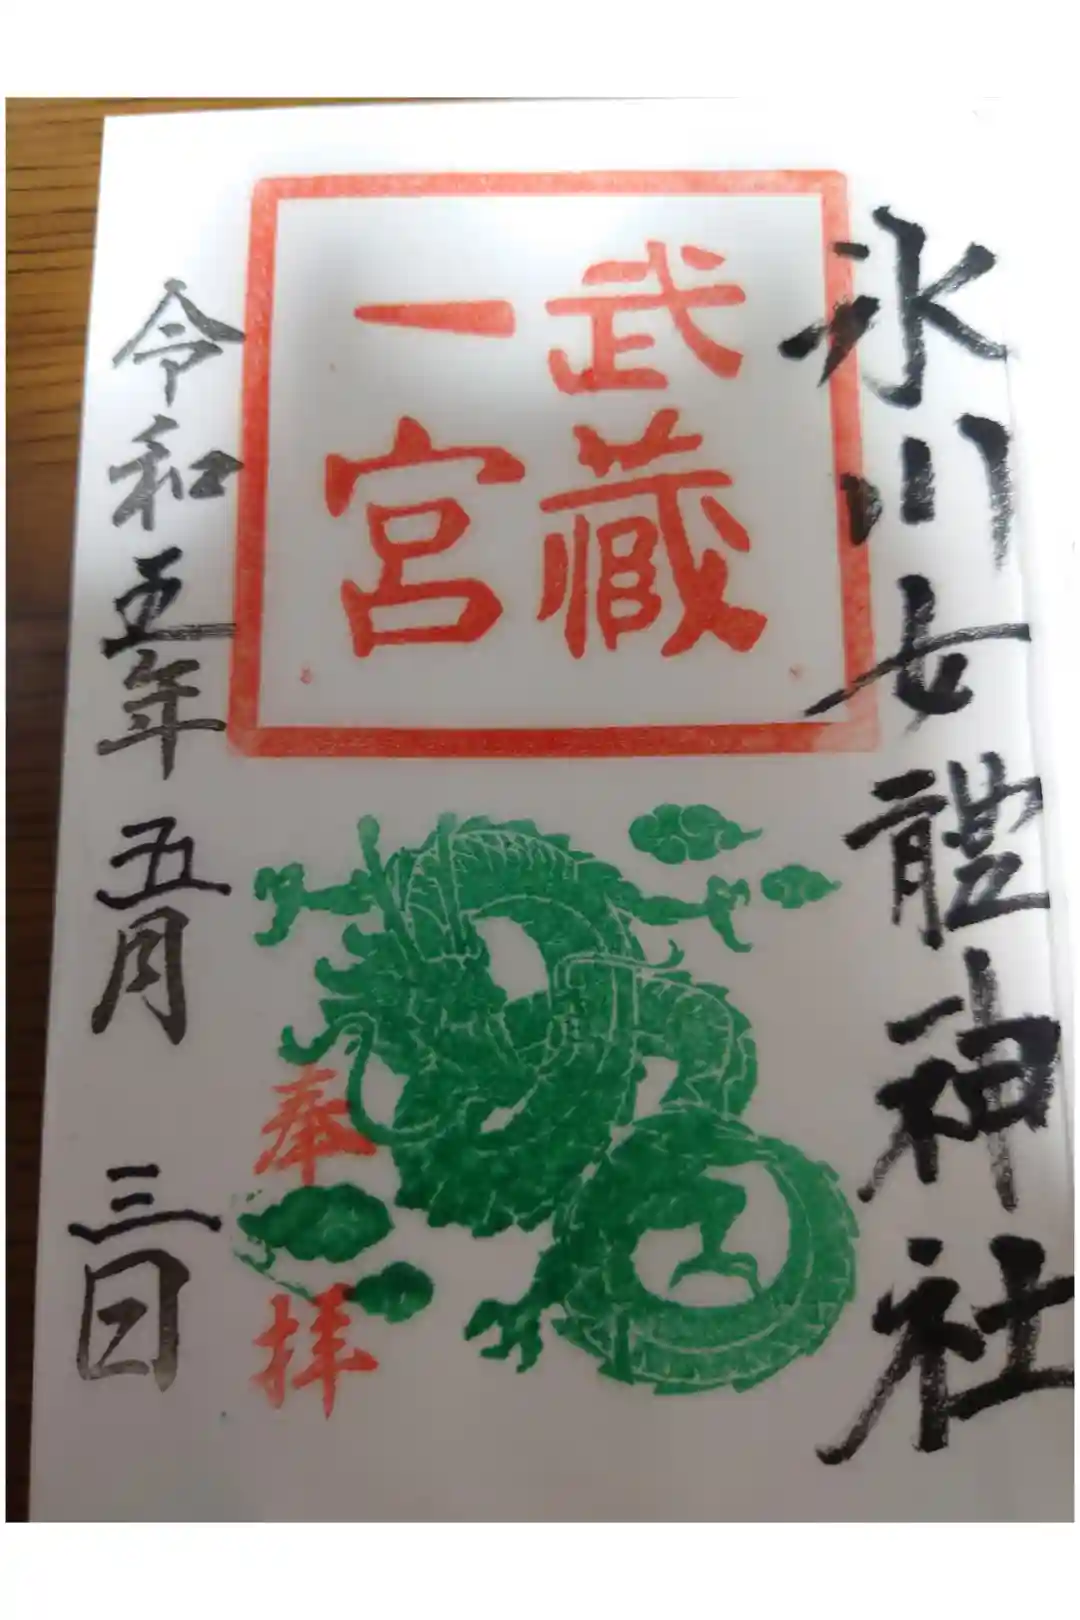 氷川女體神社
武藏
一宮
奉拝
令和五年五月三日